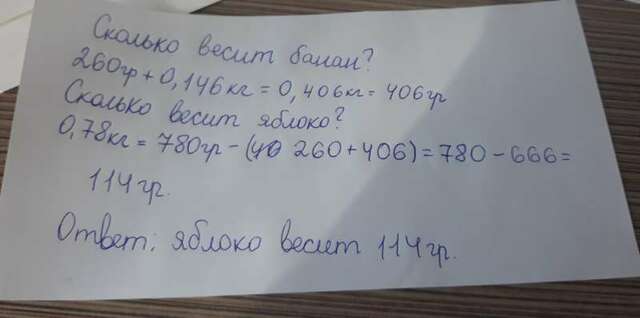 Сколько весит банан?
260гр + 0,146кг = 0,406кг = 406гр
Сколько весит яблоко?
0,78кг = 780гр - (260 + 406) = 780 - 666 =
114гр.
Ответ: яблоко весит 114гр.